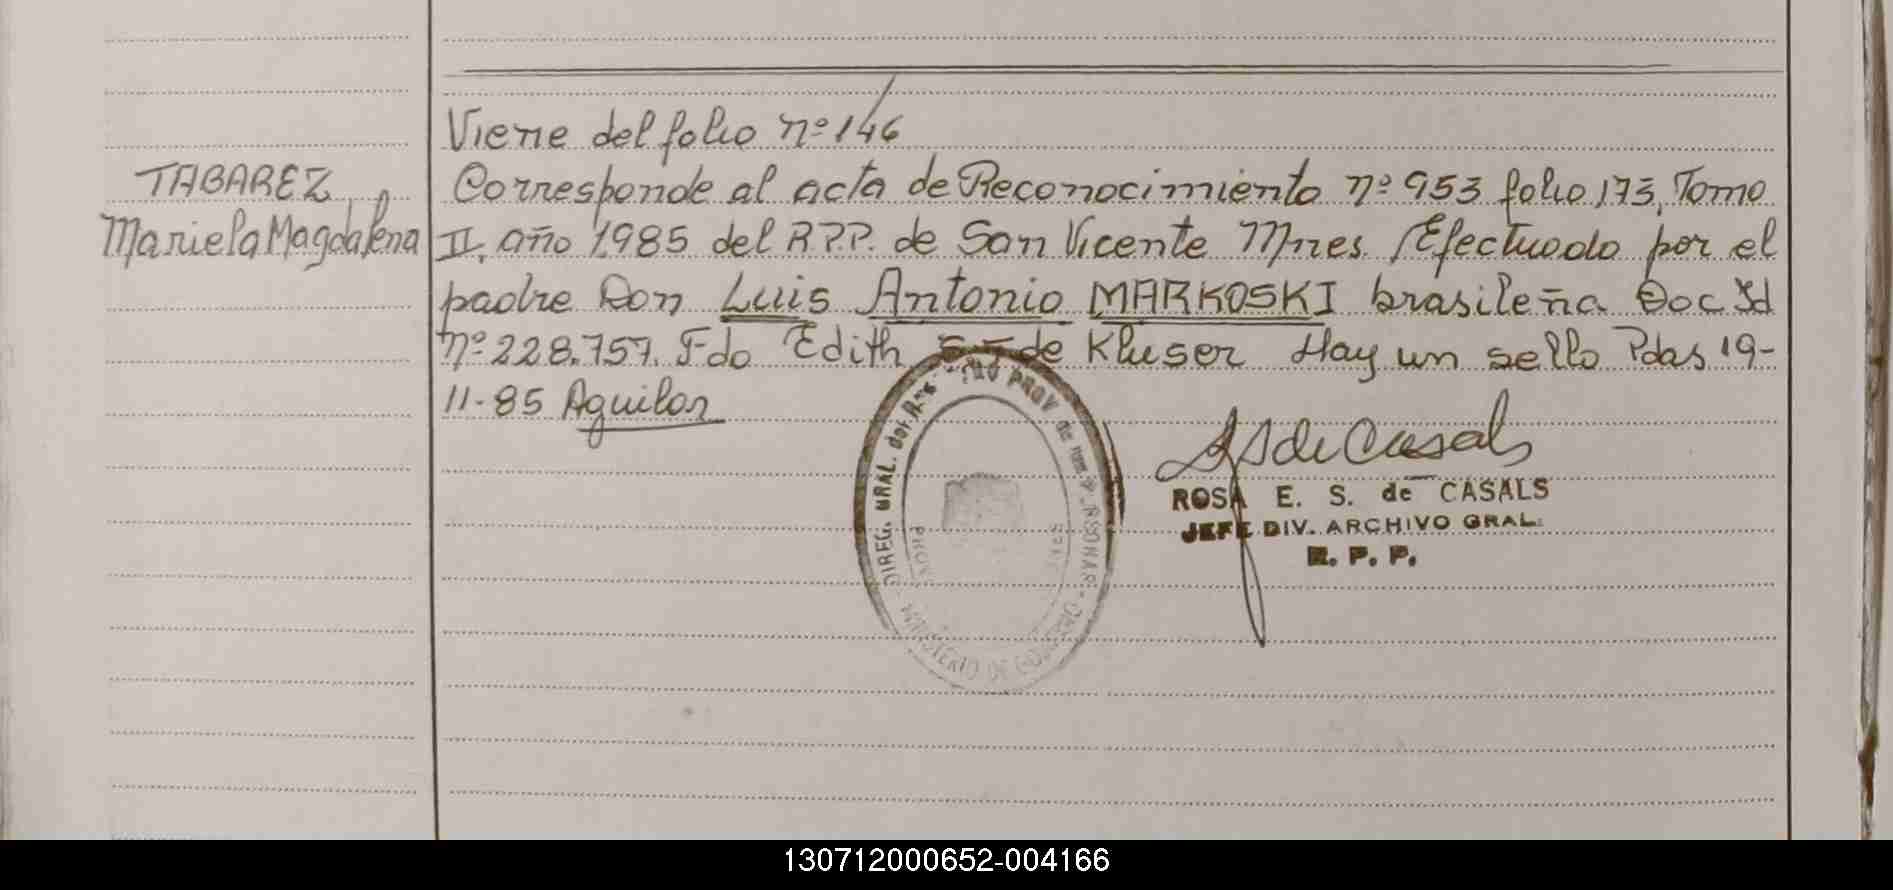 Viene del folio nº 146
TABAREZ
Mariela Magdalena
Corresponde al acta de Reconocimiento nº 953 folio 173, Tomo
II, año 1985 del R.P.P. de San Vicente Mnes. Efectuado por el
padre Don Luis Antonio MARKOSKI brasileña Doc Id
nº 228.757. Fdo Edith de Kluser Hay un sello Pdas 19-
11-85 Aguilar
DIREG. GRAL. del PROV de
MINISTERIO DE GOBIERNO
S de Casals
ROSA E. S. de CASALS
JEFE DIV. ARCHIVO GRAL.
R. P. P.
130712000652-004166